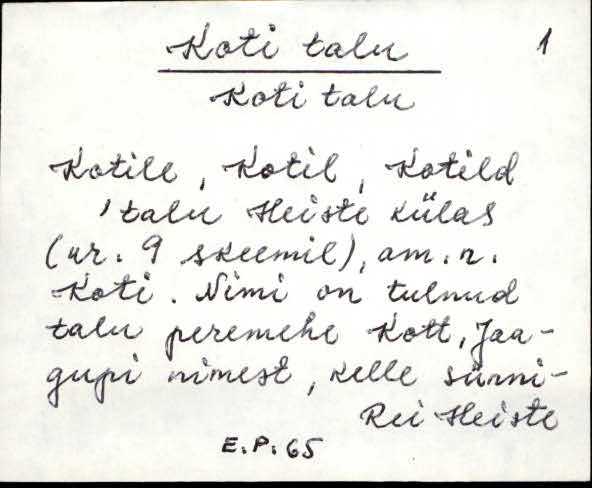 Koti talu 1
Koti talu
Kotile, Kotil, Kotild
'talu Heiste külas
(nr. 9 skeemil), am. n.
Koti. Nimi on tulnud
talu peremehe Kott, Jaa-
gupi nimest, kelle sünni-
Rei Heiste
E.P. 65